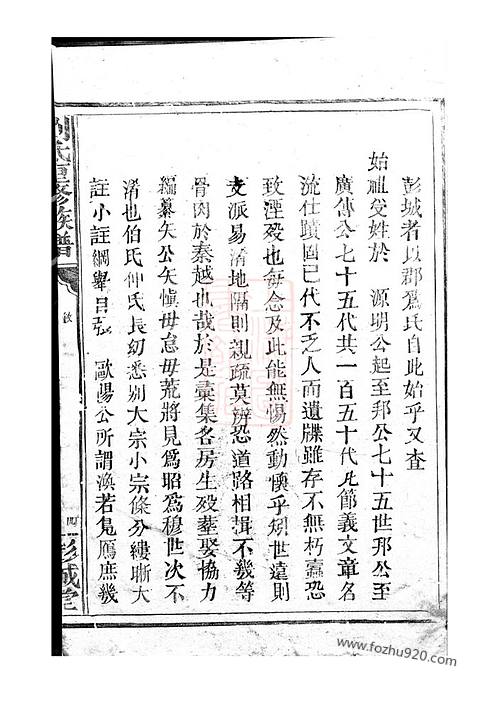 彭城者以郡爲氏自此始乎又查
始祖受姓於 源明公起至邦公七十五世邦公至
廣傳公七十五代共一百五十代凡節義文章名
流仕蹟固已代不乏人而遺牒雖存不無朽蠹恐
致湮歿也每念及此能無惕然動懷乎矧世遠則
支派易淆地隔則親疏莫辨恐道路相揖不幾等
骨肉於秦越也哉於是彙集各房生歿塟娶協力
編纂矢公矢愼毋怠毋荒將見爲昭爲穆世次不
淆也伯氏仲氏長幼悉別大宗小宗條分縷晰大
註小註綱舉目張 歐陽公所謂渙若鳧鴈庶幾
劉氏重修族譜
敘
四
彭城堂
www.fozhu920.com